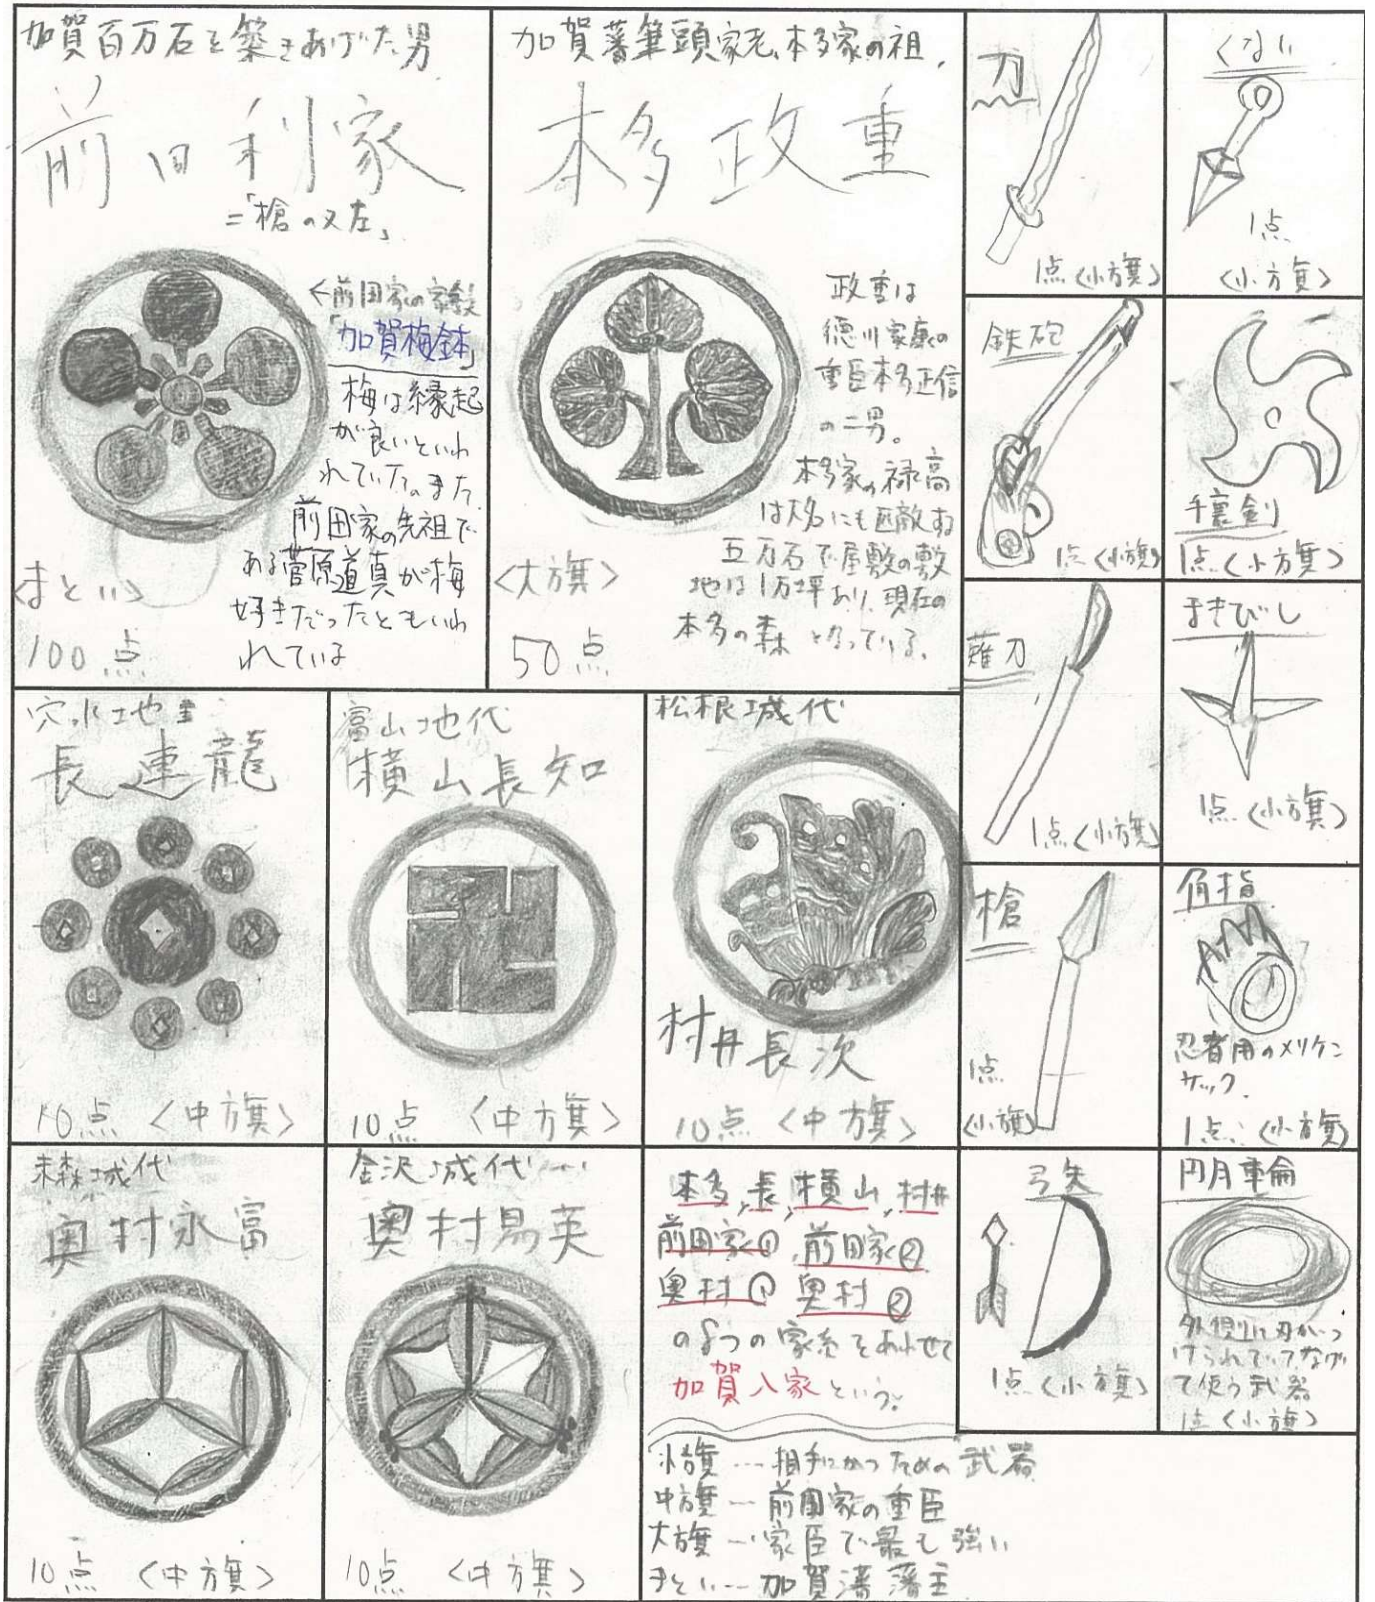 加賀百万石を築きあげた男
前田利家
=「槍の又左」
<前田家の家紋
「加賀梅鉢」
梅は縁起
が良いといわ
れていた。また
前田家の先祖で
ある菅原道真が梅
好きだったともいわ
れている
<まとい>
100点
加賀藩筆頭家老、本多家の祖、
本多政重
政重は
徳川家康の
重臣本多正信
の二男。
本多家の禄高
は大名にも匹敵する
五万石で屋敷の敷
地は1万坪あり、現在の
本多の森となっている。
<大旗>
50点
刀
1点<小旗>
くない
1点
<小旗>
鉄砲
1点<小旗>
手裏剣
1点<小旗>
薙刀
1点<小旗>
まきびし
1点<小旗>
槍
1点
<小旗>
角指
忍者用のメリケン
サック.
1点<小旗>
弓矢
1点<小旗>
円月車輪
外側に刃がつ
けられていてなげ
て使う武器
1点<小旗>
穴水地主
長連龍
10点<中旗>
富山地代
横山長知
10点<中旗>
松根城代
村井長次
10点<中旗>
末森城代
奥村永富
10点<中旗>
金沢城代
奥村易英
10点<中旗>
本多,長,横山,村井
前田家①,前田家②
奥村① 奥村②
の8つの家系をあわせて
加賀八家という。
小旗…相手にかつための武器
中旗…前田家の重臣
大旗…家臣で最も強い
まとい…加賀藩藩主